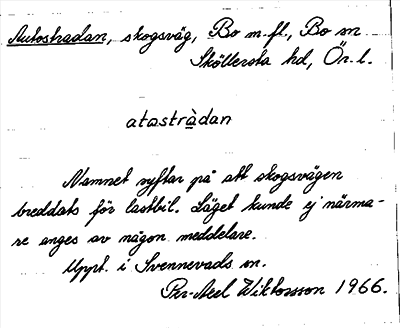 Autostradan, skogsväg, Bo m.fl., Bo sn
Sköllersta hd, Ör. l.
atastràdan
Namnet syftar på att skogsvägen
breddats för lastbil. Läget kunde ej närma-
re anges av någon meddelare.
Uppt. i Svennevads sn.
Per-Axel Wiktorsson 1966.